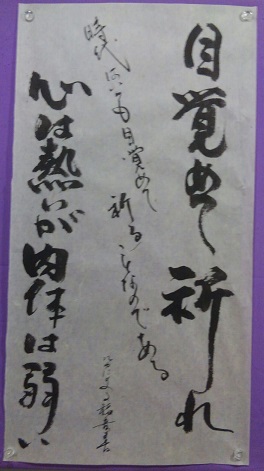 目覚めて祈れ
時代はいつも目覚めて
祈る者のものである
心は熱いが肉体は弱い